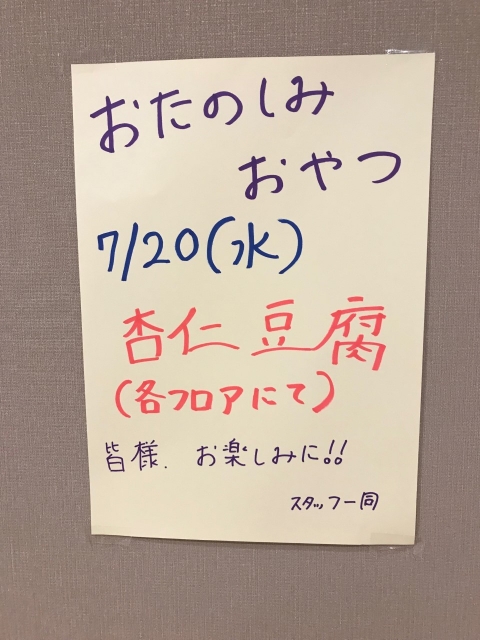 おたのしみ
おやつ
7/20(水)
杏仁豆腐
(各フロアにて)
皆様、お楽しみに!!
スタッフ一同